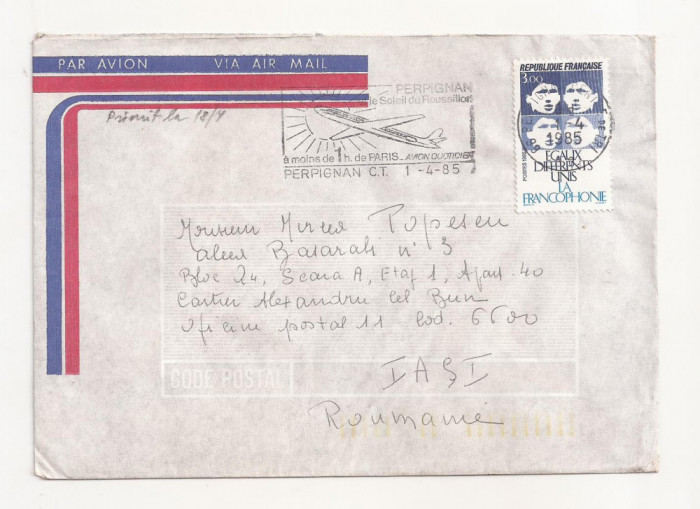 PAR AVION VIA AIR MAIL
Primit la 18/4
PERPIGNAN
le Soleil du Roussillon
à moins de 1 h. de PARIS _ AVION QUOTIDIEN
PERPIGNAN C.T. 1 -4-85
REPUBLIQUE FRANÇAISE
3,00
POSTES
1 -4
1985
EGAUX
DIFFERENTS
UNIS
LA
FRANCOPHONIE
Monsieur Mircea Popescu
aleea Basarabi n° 3
Bloc 24, Scara A, Etaj 1, Apart. 40
Cartier Alexandru cel Bun
Oficiu postal 11 Cod. 6600
CODE POSTAL
IAŞI
Roumanie